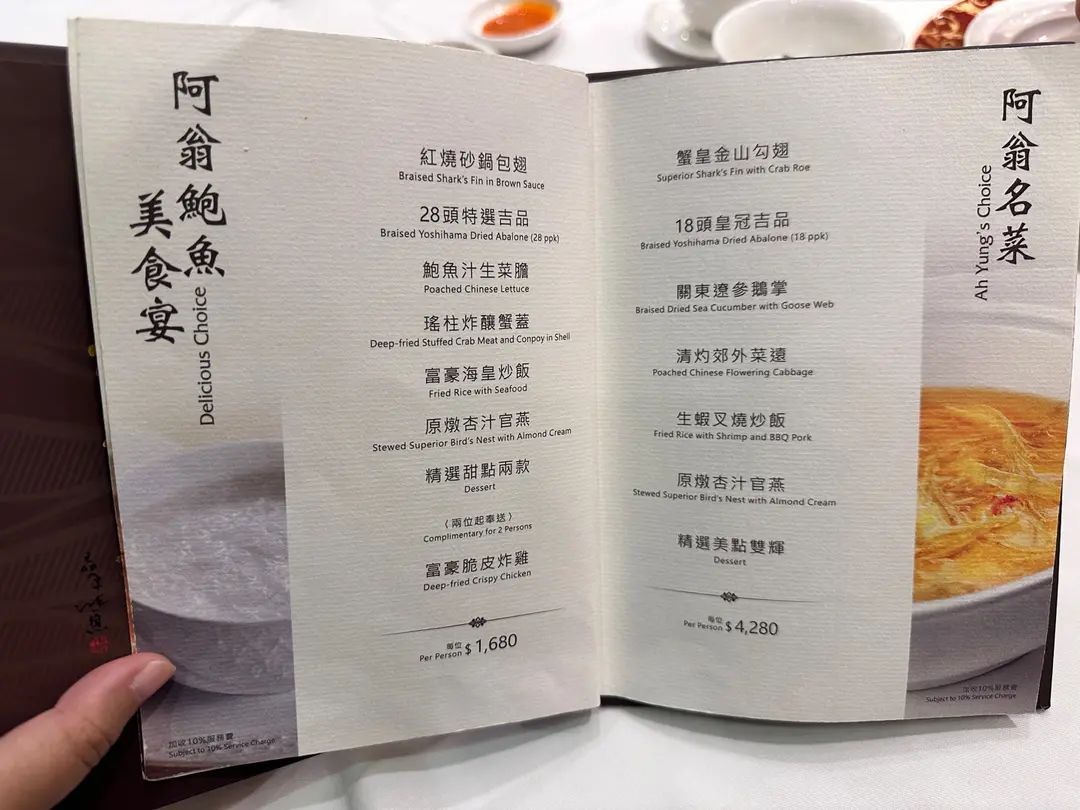 阿翁鮑魚
美食宴
Delicious Choice
紅燒砂鍋包翅
Braised Shark's Fin in Brown Sauce
28頭特選吉品
Braised Yoshihama Dried Abalone (28 ppk)
鮑魚汁生菜膽
Poached Chinese Lettuce
瑤柱炸釀蟹蓋
Deep-fried Stuffed Crab Meat and Conpoy in Shell
富豪海皇炒飯
Fried Rice with Seafood
原燉杏汁官燕
Stewed Superior Bird's Nest with Almond Cream
精選甜點兩款
Dessert
（兩位起奉送）
Complimentary for 2 Persons
富豪脆皮炸雞
Deep-fried Crispy Chicken
每位
Per Person $ 1,680
加收10%服務費
Subject to 10% Service Charge
阿翁名菜
Ah Yung's Choice
蟹皇金山勾翅
Superior Shark's Fin with Crab Roe
18頭皇冠吉品
Braised Yoshihama Dried Abalone (18 ppk)
關東遼參鵝掌
Braised Dried Sea Cucumber with Goose Web
清灼郊外菜遠
Poached Chinese Flowering Cabbage
生蝦叉燒炒飯
Fried Rice with Shrimp and BBQ Pork
原燉杏汁官燕
Stewed Superior Bird's Nest with Almond Cream
精選美點雙輝
Dessert
每位
Per Person $ 4,280
加收10%服務費
Subject to 10% Service Charge